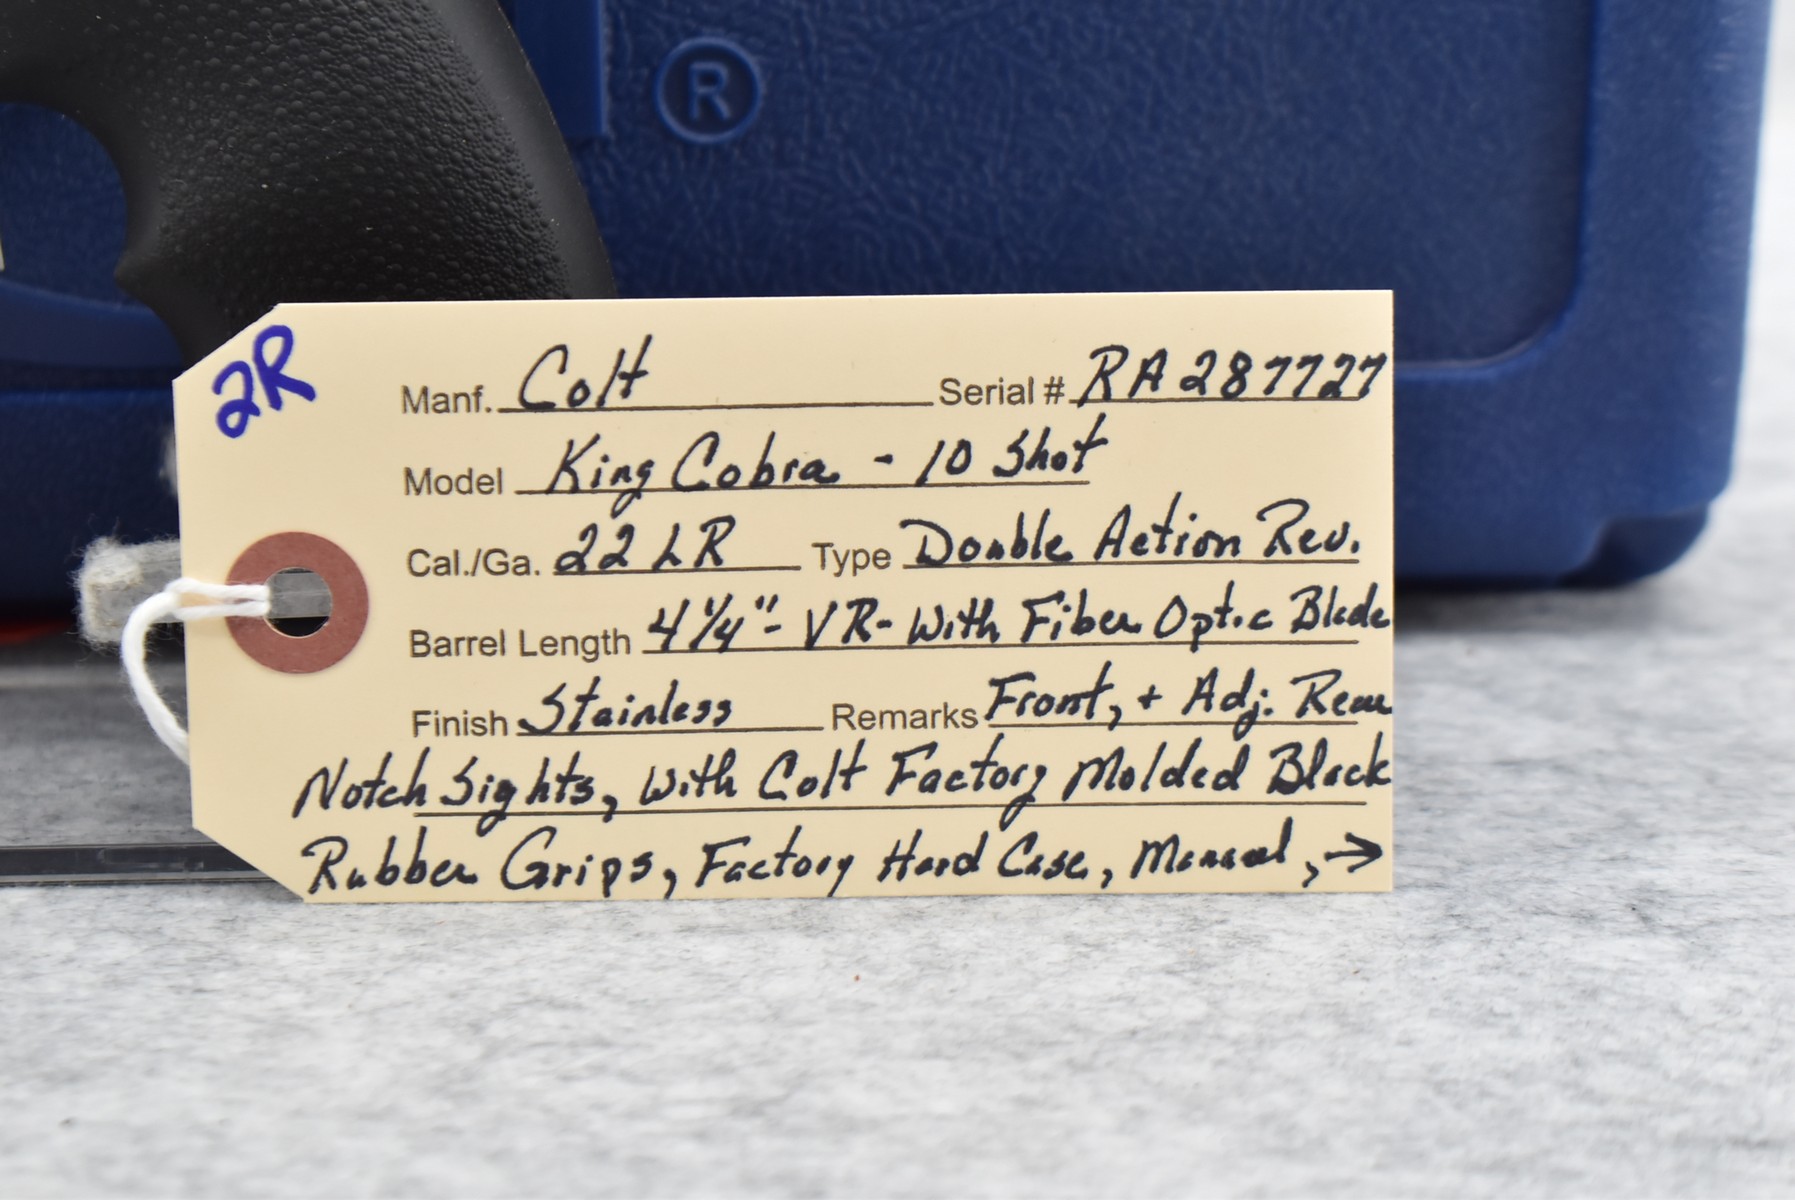 ®
2R
Manf. Colt Serial # RA287727
Model King Cobra - 10 Shot
Cal./Ga. 22 LR Type Double Action Rev.
Barrel Length 4 1/4" - VR - With Fiber Optic Blade
Finish Stainless Remarks Front, + Adj. Rear
Notch Sights, With Colt Factory Molded Black
Rubber Grips, Factory Hard Case, Manual, →